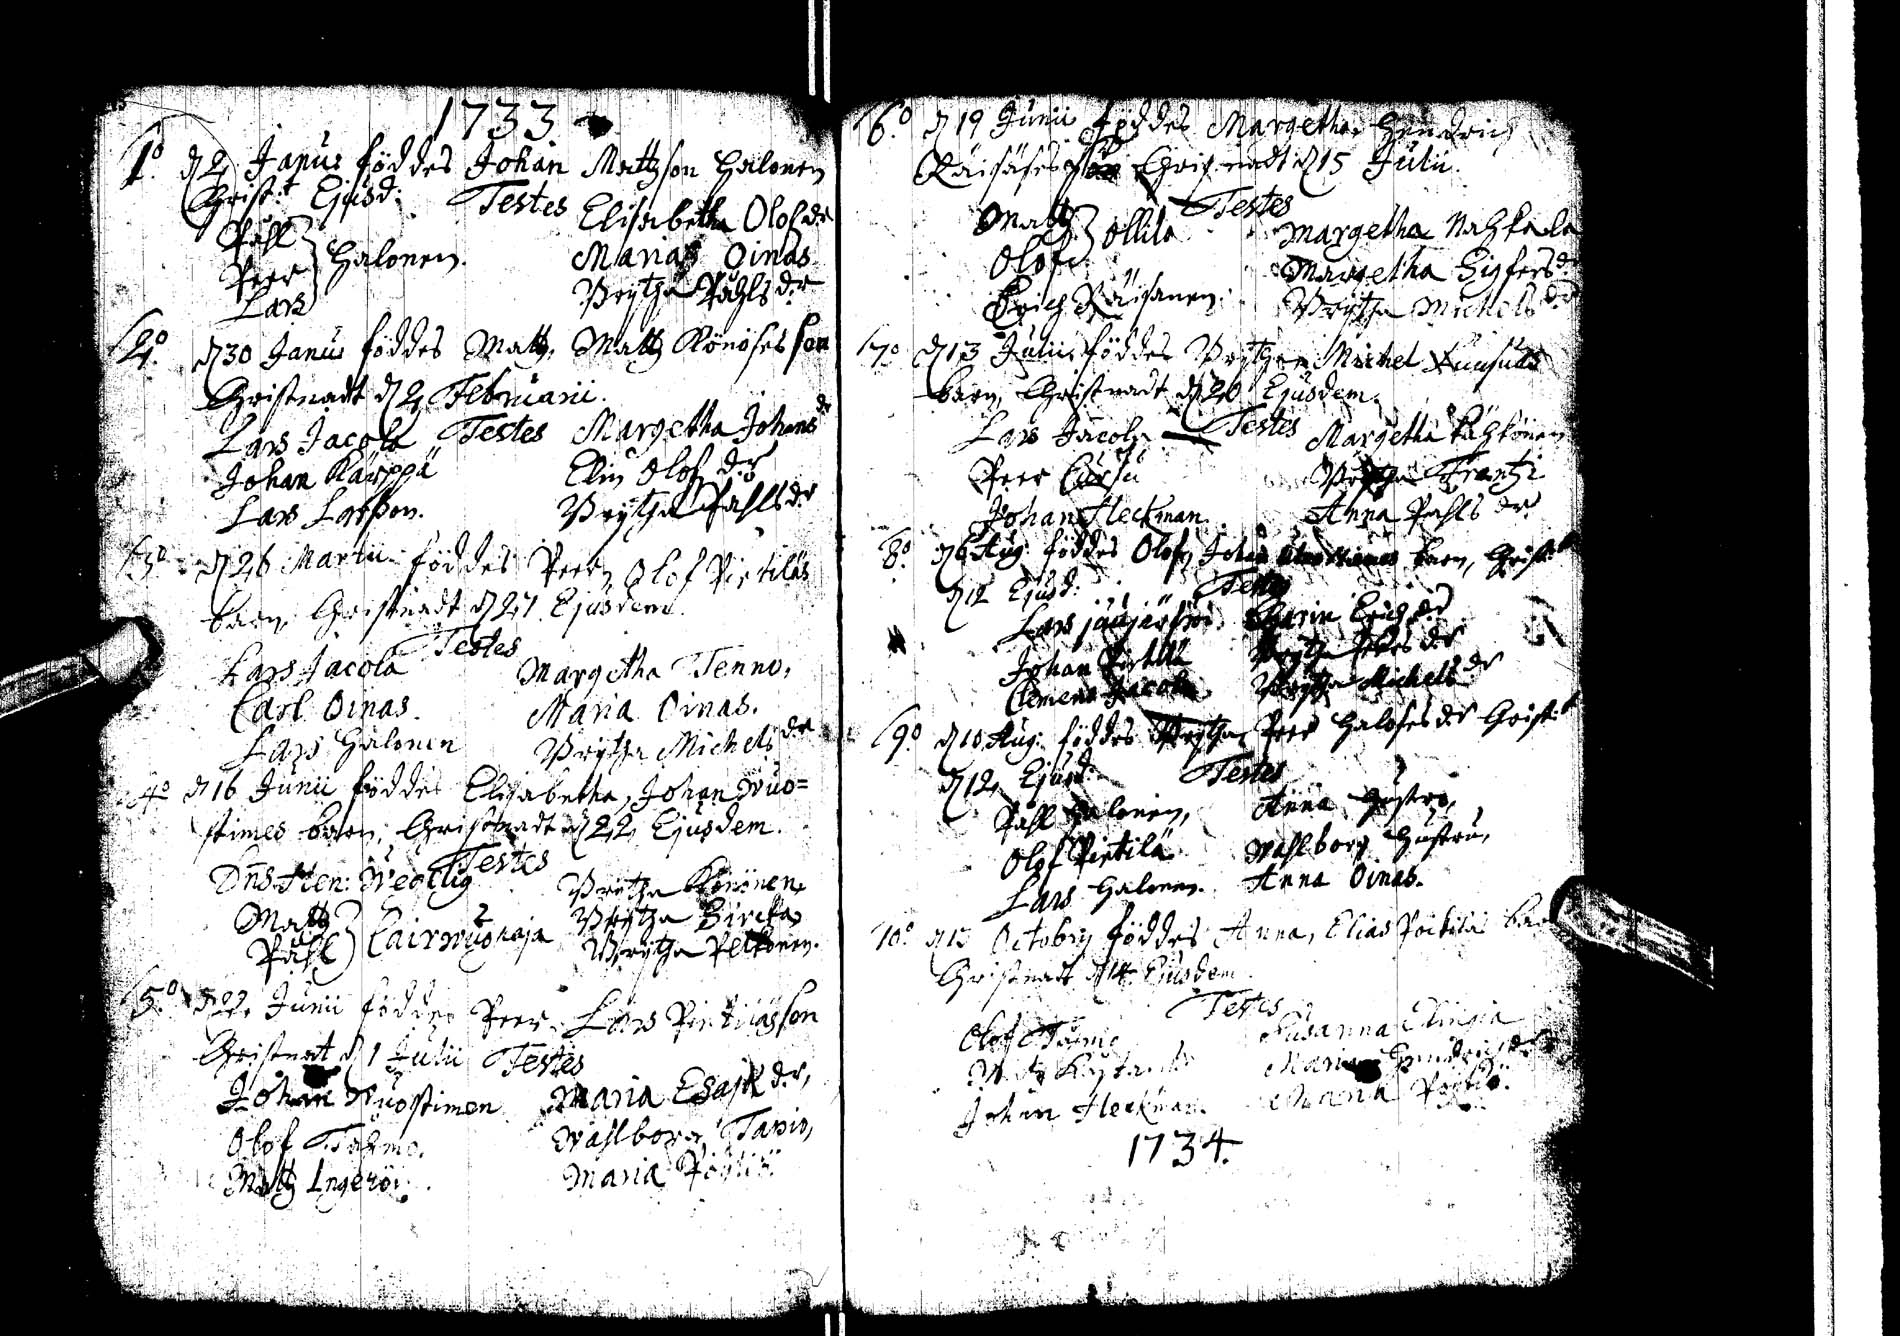 1733
1.o d 2 Janu: föddes Johan Mattzson Halonen
Christ:t Ejusd: Testes Elisabetha Olofdr
Påhl
Peer Halonen. Maria Oinas
Lars Brytha Påhls dr
2.o d 30 Janu: föddes Matz, Matz Könöses son
Christnadt d 2 Februarii.
Lars Jacola Testes Margetha Johans dr
Johan Kärppä Elin Olofs dr
Lars Larsson. Brytha Påhls dr
3.o d 26 Martii föddes Peer, Olof Pietiläs
barn, Christnadt d 27 Ejusdem.
Testes
Lars Jacola Margetha Tenno,
Carl Oinas. Maria Oinas.
Lars Halonen Brytha Michels dr
4.o d 16 Junii föddes Elisabetha, Johan Wuo=
stimes barn, Christnadt d 22 Ejusdem.
Testes
Dns Hen: Brytha Könönen,
Matts Brytha
Påhl Lairwuohaja Brytha Pelkonen.
5.o d 22 Junii föddes Peer, Lars Pietiläs son
Christnat d 1 Julii Testes
Johan Wuostimon Maria Esaje dr,
Olof Tahmo. Wahlborg
Matz Ingeröi. Maria
6.o d 19 Junii föddes Margetha, Hendrich
Räisäses Christnadt d 15 Julii.
Testes
Matz
Olof Ollila Margetha
Margetha Sigfers dr
Erich Räisänen. Brytha Michels dr
7.o d 13 Julii föddes Brytha, Michel
barn, Christnadt d 20 Ejusdem.
Lars Jacola Testes Margetha
Peer Cursu Brytha Frantzi
Johan Heckman. Anna Påhls dr
8.o d 6 Aug: föddes Olof, Johan barn, Christ:t
d 12 Ejusd: Testes
Lars Carin Erichs dr
Johan Brytha
Clemens Jacola Brytha Michels dr
9.o d 10 Aug: föddes Brytha, Peer Haloses dr Christ:t
d 12, Ejusd: Testes
Påhl Halonen, Anna Hustru,
Olof Pietilä Wahlborg Hustru,
Lars Halonen. Anna Oinas.
10.o d 13 Octobris föddes Anna, Elias barn
Christnadt d 14 Ejusdem.
Testes
Olof Tahmo Susanna
Maria Hendrichs dr
Johan Heckman. Maria
1734.